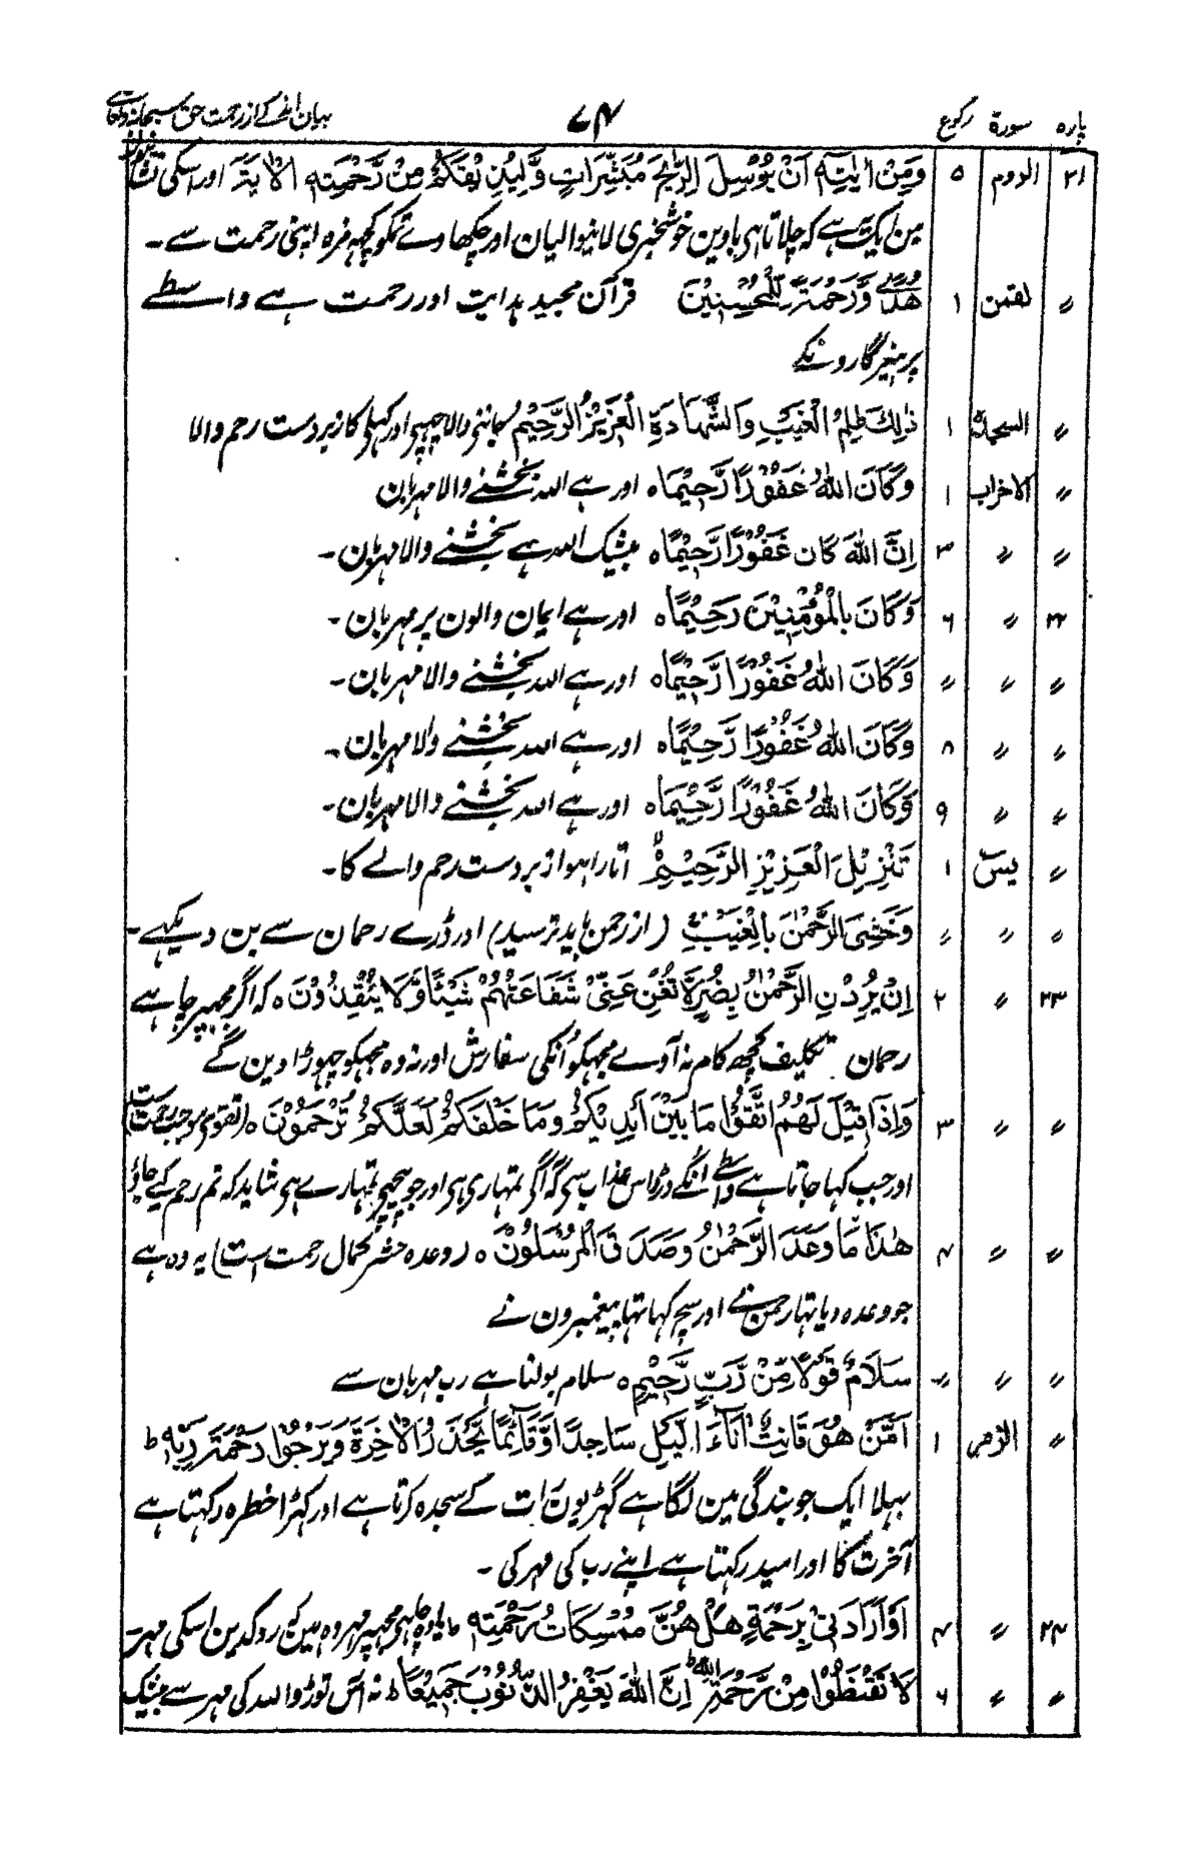 پارہ سورۃ رکوع ۷۴ بیان اطی کے از رحمت حق سبحانہ وتعالے
۲۱ الروم ۵ وَمِنْ اٰیٰتِہٖ اَنْ یُّرْسِلَ الرِّیٰحَ مُبَشِّرَاتٍ وَّلِیُذِیْقَکُمْ مِّنْ رَّحْمَتِہٖ الاٰیۃ اور اسکی نشانیون
مین ایک یہ ہے کہ چلاتا ہی باوین خوشخبری لانیوالیان اور چکھاوے تمکو کچہہ مزہ اپنی رحمت سے ۔
〃 لقمن ۱ ھُدًی وَّرَحْمَۃً لِّلْمُحْسِنِیْنَ قرآن مجید ہدایت اور رحمت ہے واسطے
پرہیزگارونکے
〃 السجدۃ ۱ ذٰلِکَ عٰلِمُ الْغَیْبِ وَالشَّھَادَۃِ الْعَزِیْزُ الرَّحِیْمُ جاننی والا چہپی اور کہلی کا زبردست رحم والا
〃 الاحزاب ۱ وَکَانَ اللّٰہُ غَفُوْرًا رَّحِیْمًا ہ اور ہے اللہ بخشنے والا مہربان
〃 〃 ۳ اِنَّ اللّٰہَ کَانَ غَفُوْرًا رَّحِیْمًا ہ بیشک اللہ ہے بخشنے والا مہربان ۔
۲۲ 〃 ۶ وَکَانَ بِالْمُؤْمِنِیْنَ رَحِیْمًا ہ اور ہے ایمان والون پر مہربان ۔
〃 〃 〃 وَکَانَ اللّٰہُ غَفُوْرًا رَّحِیْمًا ہ اور ہے اللہ بخشنے والا مہربان ۔
〃 〃 ۸ وَکَانَ اللّٰہُ غَفُوْرًا رَّحِیْمًا ہ اور ہے اللہ بخشنے والا مہربان ۔
〃 〃 ۹ وَکَانَ اللّٰہُ غَفُوْرًا رَّحِیْمًا ہ اور ہے اللہ بخشنے والا مہربان ۔
〃 یٰسٓ ۱ تَنْزِیْلَ الْعَزِیْزِ الرَّحِیْمِ اتارا ہوا زبردست رحم والے کا ۔
〃 〃 〃 وَخَشِیَ الرَّحْمٰنَ بِالْغَیْبِ (از رحمن باید ترسید) اور ڈرے رحمان سے بن دیکہے ۔
۲۳ 〃 ۲ اِنْ یُّرِدْنِ الرَّحْمٰنُ بِضُرٍّ لَّا تُغْنِ عَنِّیْ شَفَاعَتُھُمْ شَیْئًا وَّلَا یُنْقِذُوْنَ ہ کہ اگر مجہپر چاہے
رحمان تکلیف کچہہ کام نہ آوے مجہکو اُنکی سفارش اور نہ وہ مجہکو چہوڑا دین گے
〃 〃 ۳ وَاِذَا قِیْلَ لَھُمُ اتَّقُوْا مَا بَیْنَ اَیْدِیْکُمْ وَمَا خَلْفَکُمْ لَعَلَّکُمْ تُرْحَمُوْنَ ہ (تقوی موجب رحمت است)
اور جب کہا جاتا ہے واسطے اُنکے ڈرو اس عذاب سی کہ آگی تمہاری ہی اور جو پیچہے تمہارے ہی شاید کہ تم رحم کیے جاؤ
〃 〃 ۴ ھٰذَا مَا وَعَدَ الرَّحْمٰنُ وَصَدَقَ الْمُرْسَلُوْنَ ہ (وعدہ حشر کمال رحمت است) یہ وہ ہے
جو وعدہ دیا تہا رحمن نے اور سچ کہا تہا پیغمبرون نے
〃 〃 〃 سَلَامٌ قَوْلًا مِّنْ رَّبٍّ رَّحِیْمٍ ہ سلام بولنا ہے رب مہربان سے
〃 الزمر ۱ اَمَّنْ ھُوَ قَانِتٌ اٰنَآءَ الَّیْلِ سَاجِدًا وَّقَآئِمًا یَّحْذَرُ الْاٰخِرَۃَ وَیَرْجُوْا رَحْمَۃَ رَبِّہٖ ط
بہلا ایک جو بندگی مین لگا ہے گہڑیون رات کے سجدہ کرتا ہے اور کہڑا خطرہ رکہتا ہے
آخرت کا اور امید رکہتا ہے اپنے رب کی مہر کی ۔
۲۴ 〃 ۴ اَوْ اَرَادَنِیْ بِرَحْمَۃٍ ھَلْ ھُنَّ مُمْسِکَاتُ رَحْمَتِہٖ ط یا وہ چاہے مجہپر مہر وہ ہین کہ روکدین اسکی مہر ۔
〃 〃 ۶ لَا تَقْنَطُوْا مِنْ رَّحْمَۃِ اللّٰہِ اِنَّ اللّٰہَ یَغْفِرُ الذُّنُوْبَ جَمِیْعًا ط نہ آس توڑو اللہ کی مہر سے بیشک